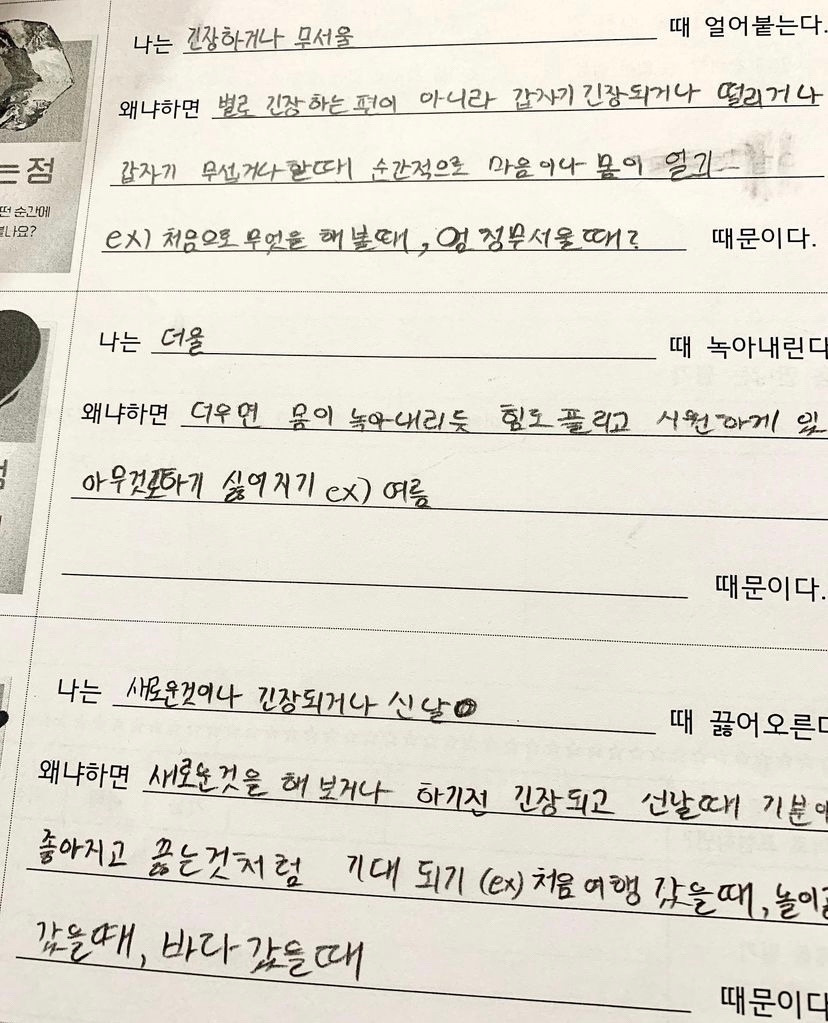 나는 긴장하거나 무서울 때 얼어붙는다.
왜냐하면 별로 긴장하는 편이 아니라 갑자기 긴장되거나 떨리거나
는점
갑자기 무섭거나 할때 순간적으로 마음이나 몸이 얼기
떤 순간에
나요?
ex) 처음으로 무엇을 해 볼때, 엄청무서울때? 때문이다.
나는 더울 때 녹아내린다
왜냐하면 더우면 몸이 녹아내리듯 힘도 풀리고 시원하게 있
아무것도하기 싫어지기 ex) 여름
때문이다.
나는 새로운것이나 긴장되거나 신날 때 끓어오른다
왜냐하면 새로운것을 해 보거나 하기전 긴장되고 신날때 기분이
좋아지고 끓는것처럼 기대 되기 (ex) 처음 여행 갔을때, 놀이공
갔을때, 바다 갔을때
때문이다